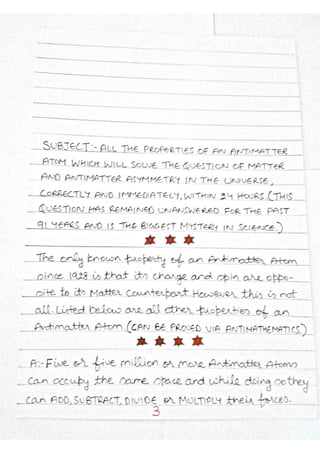 SUBJECT:- ALL THE PROPERTIES OF AN ANTIMATTER
ATOM WHICH WILL SOLVE THE QUESTION OF MATTER
AND ANTIMATTER ASYMMETRY IN THE UNIVERSE,
CORRECTLY AND IMMEDIATELY, WITHIN 24 HOURS. (THIS
QUESTION HAS REMAINED UNANSWERED FOR THE PAST
91 YEARS AND IS THE BIGGEST MYSTERY IN SCIENCE.)
The only known property of an Antimatter Atom
since 1928 is that its charge and spin are oppo-
site to its Matter Counterpart. However this is not
all. Listed below are all other properties of an
Antimatter Atom. (CAN BE PROVED VIA ANTIMATHEMATICS.)
A:- Five or five million or more Antimatter Atoms
can occupy the same space and while doing so they
can ADD, SUBTRACT, DIVIDE or MULTIPLY their forces.
3